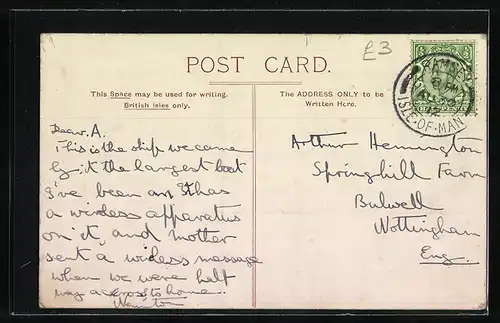 £3
POST CARD.
This Space may be used for writing.
British Isles only.
The ADDRESS ONLY to be
Written Here.
RAMSEY
ISLE-OF-MAN
Dear A.
This is the ship we came
by it the largest boat
I've been on. It has
a wireless apparatus
on it, and mother
sent a wireless message
when we were half
way across to home.
Arthur Hemington
Springhill Farm
Bulwell
Nottingham
Eng.